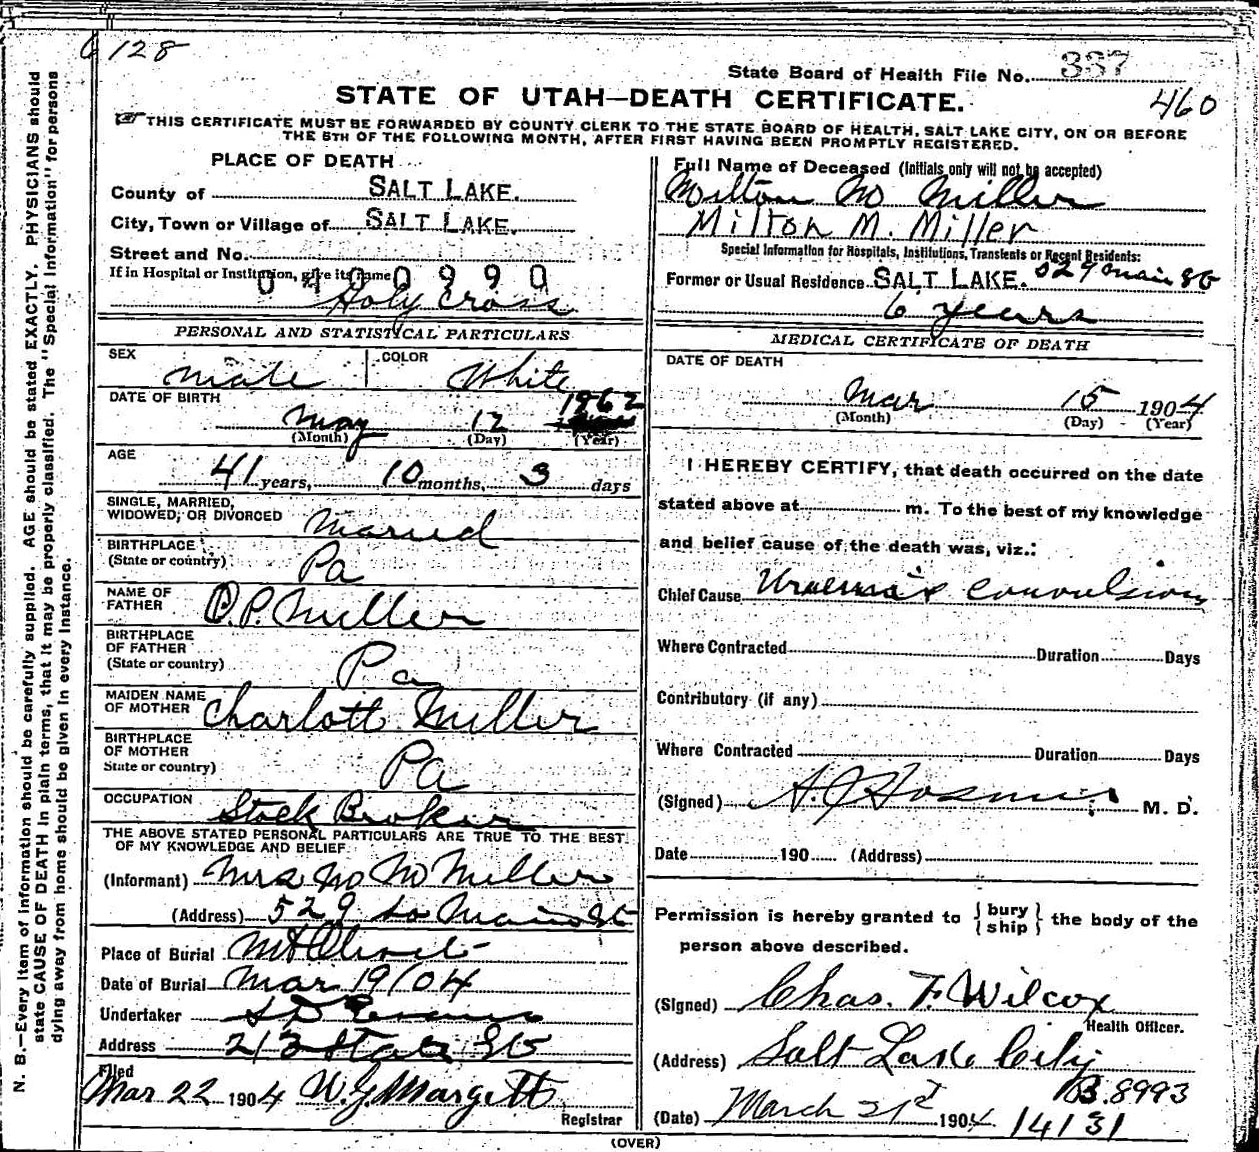 6128
State Board of Health File No. 337
460
STATE OF UTAH—DEATH CERTIFICATE.
THIS CERTIFICATE MUST BE FORWARDED BY COUNTY CLERK TO THE STATE BOARD OF HEALTH, SALT LAKE CITY, ON OR BEFORE
THE 5TH OF THE FOLLOWING MONTH, AFTER FIRST HAVING BEEN PROMPTLY REGISTERED.
PLACE OF DEATH
County of SALT LAKE.
City, Town or Village of SALT LAKE.
Street and No.
If in Hospital or Institution, give its name
0 4 0 0 9 9 0
Holy Cross
PERSONAL AND STATISTICAL PARTICULARS
SEX male COLOR White
DATE OF BIRTH
May 12 1962
(Month) (Day) (Year)
AGE
41 years, 10 months, 3 days
SINGLE, MARRIED,
WIDOWED, OR DIVORCED Married
BIRTHPLACE
(State or country) Pa
NAME OF
FATHER O.P. Miller
BIRTHPLACE
OF FATHER
(State or country) Pa
MAIDEN NAME
OF MOTHER Charlott Miller
BIRTHPLACE
OF MOTHER
State or country) Pa
OCCUPATION Stock Broker
THE ABOVE STATED PERSONAL PARTICULARS ARE TRUE TO THE BEST
OF MY KNOWLEDGE AND BELIEF
(Informant) Mrs M M Miller
(Address) 529 So Main St
Place of Burial Mt Olivet
Date of Burial Mar 19/04
Undertaker S D Evans
Address 213 State St
Filed
Mar 22 1904 W.G. Margett
Registrar
Full Name of Deceased (Initials only will not be accepted)
Milton M Miller
Milton M. Miller
Special Information for Hospitals, Institutions, Transients or Recent Residents:
Former or Usual Residence SALT LAKE. 529 Main St
6 years
MEDICAL CERTIFICATE OF DEATH
DATE OF DEATH
Mar 15 1904
(Month) (Day) (Year)
I HEREBY CERTIFY, that death occurred on the date
stated above at m. To the best of my knowledge
and belief cause of the death was, viz.:
Chief Cause Uraemic convulsions
Where Contracted Duration Days
Contributory (if any)
Where Contracted Duration Days
(Signed) A. J. Hosmer M. D.
Date 190 (Address)
Permission is hereby granted to { bury ship } the body of the
person above described.
(Signed) Chas. F. Wilcox
Health Officer.
(Address) Salt Lake City
B.8993
(Date) March 21st 1904
14131
(OVER)
N. B.—Every item of information should be carefully supplied. AGE should be stated EXACTLY. PHYSICIANS should
state CAUSE OF DEATH in plain terms, that it may be properly classified. The "Special Information" for persons
dying away from home should be given in every instance.